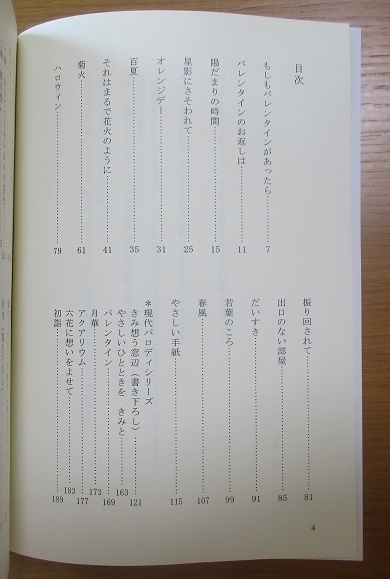 目次
もしもバレンタインがあったら……7
バレンタインのお返しは……11
陽だまりの時間……15
星影にさそわれて……25
オレンジデー……31
百夏……35
それはまるで花火のように……41
菊火……61
ハロウィン……79
振り回されて……81
出口のない部屋……85
だいすき……91
若葉のころ……99
春風……107
やさしい手紙……115
＊現代パロディシリーズ
きみ想う窓辺（書き下ろし）……121
やさしいひとときを　きみと……163
バレンタイン……169
月華……173
アクアリウム……177
六花に想いをよせて……183
初詣……189
4